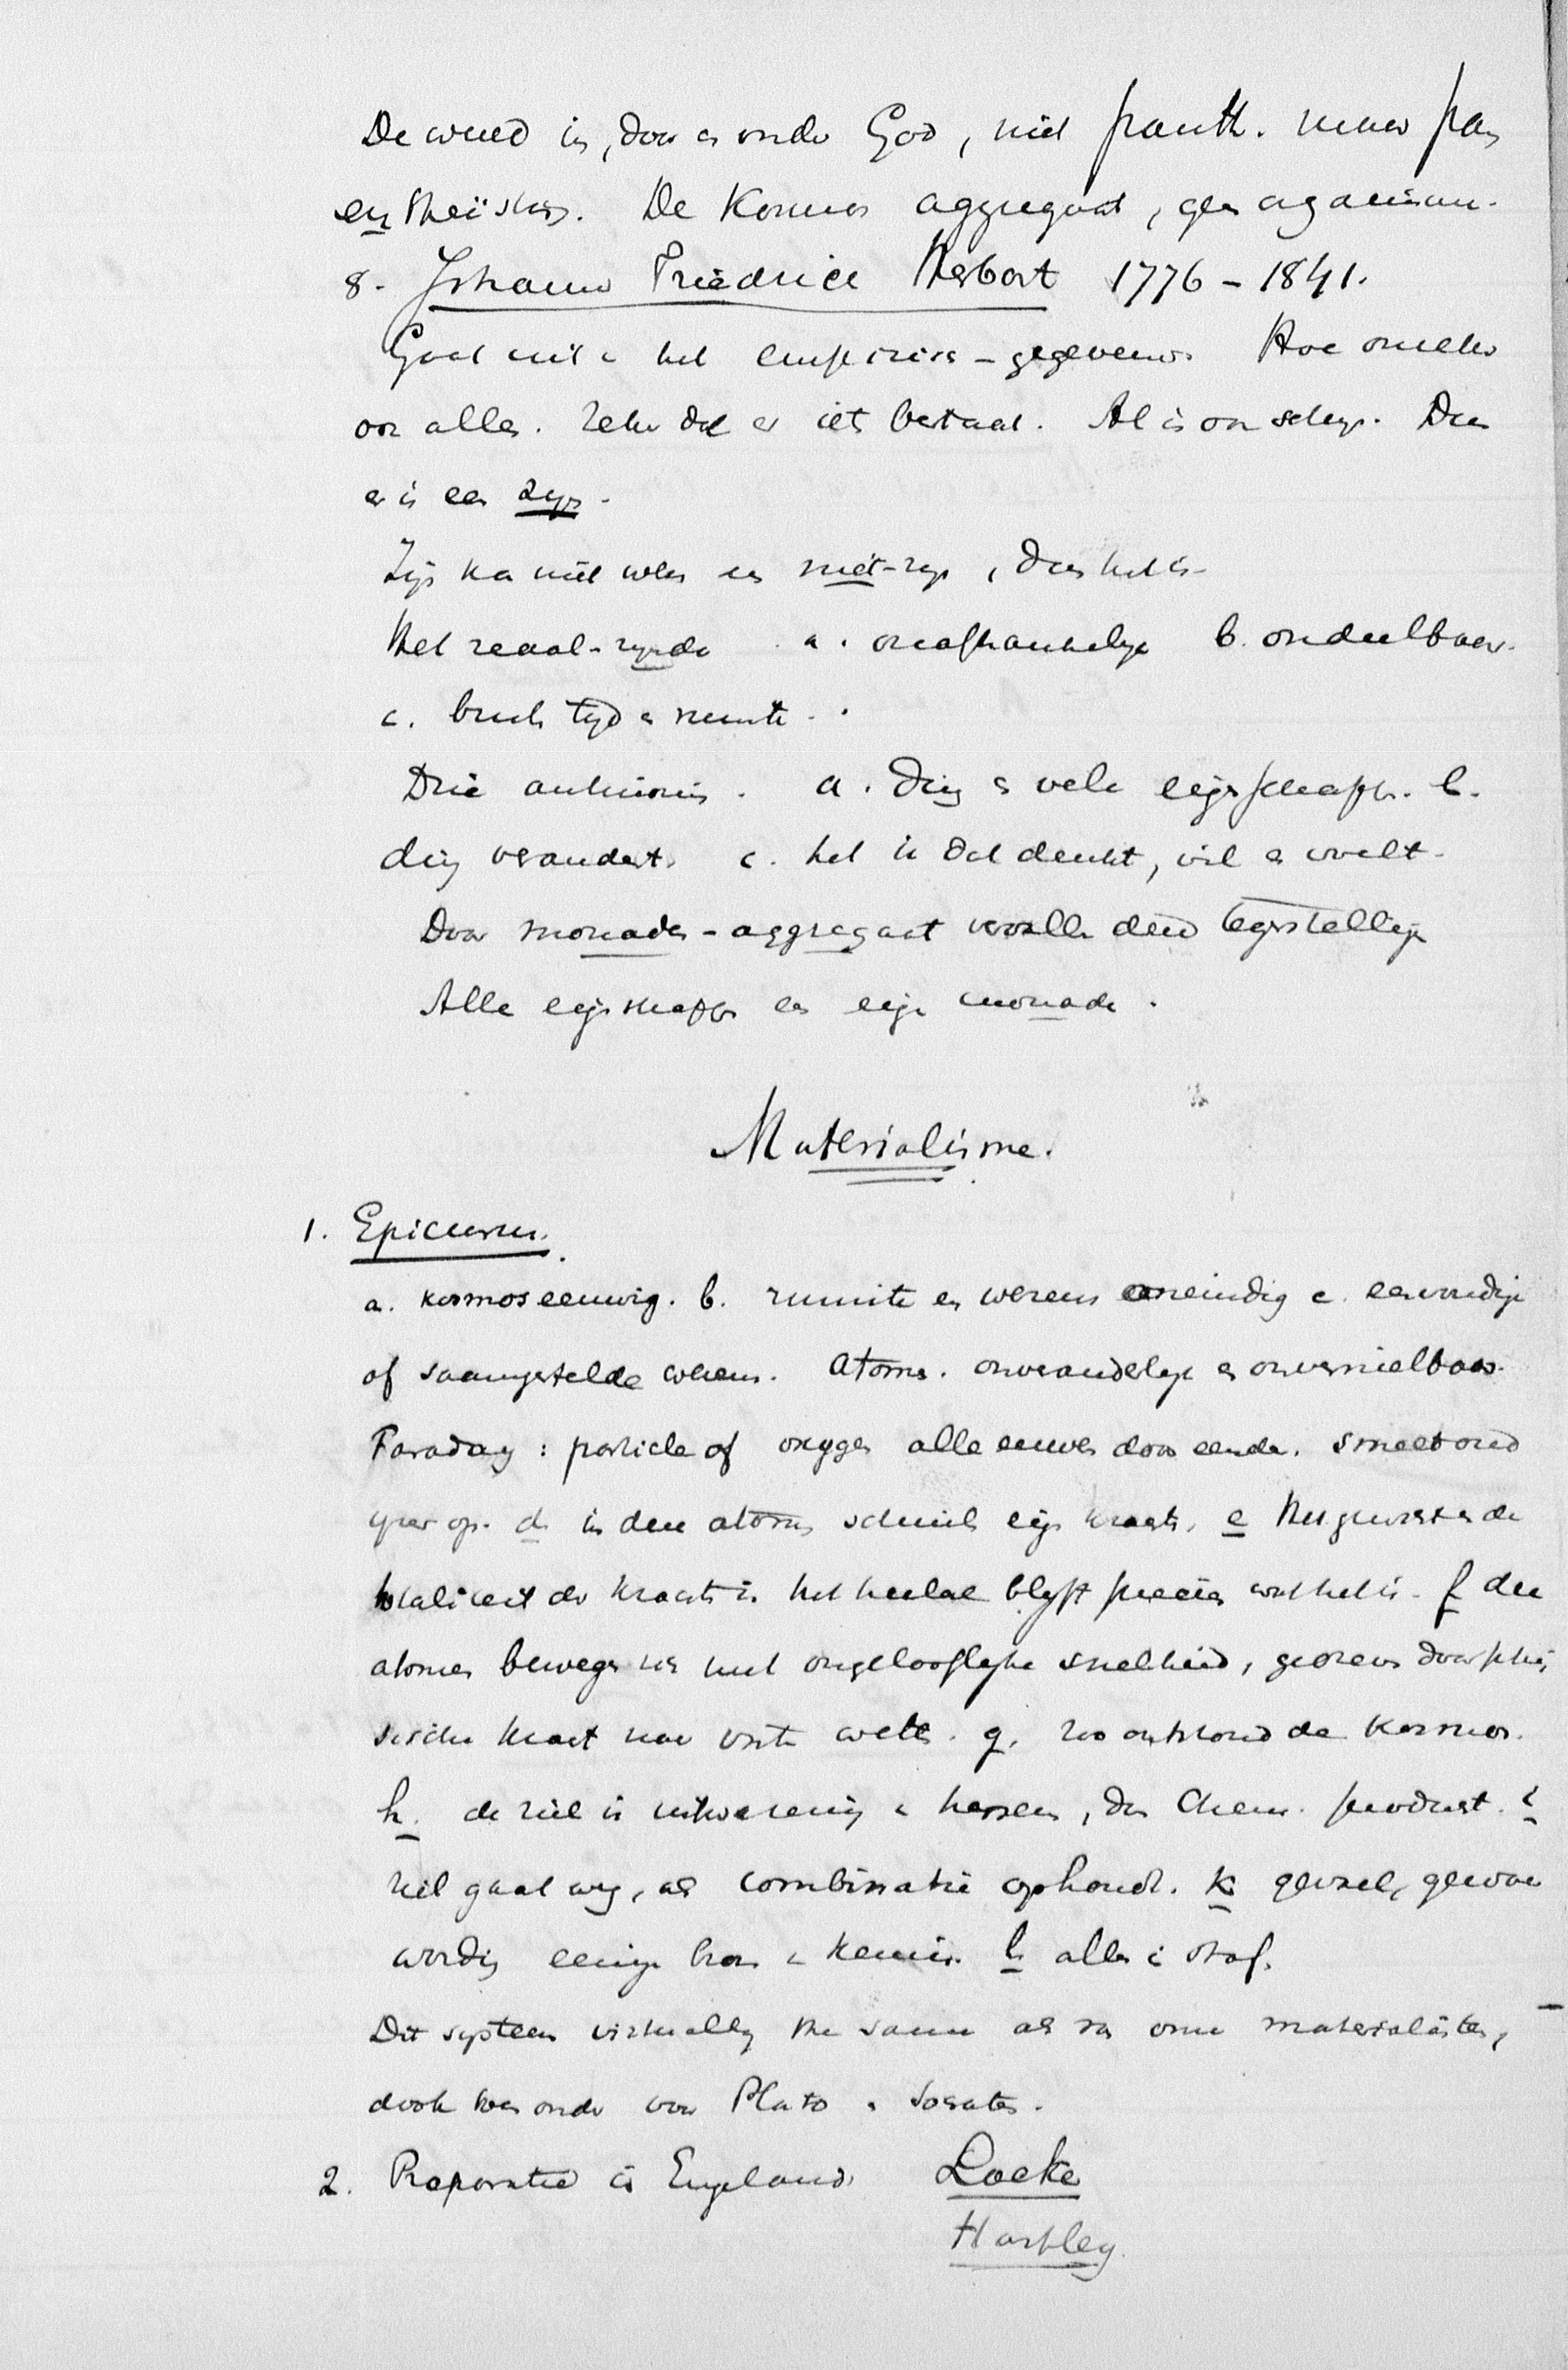 De wereld in, door en onder God, niet panth. maar pan
en theïstisch. De Kosmos aggregaat, geen organisme.
8. Johann Friedrich Herbart 1776 - 1841.
Gaat uit v het empirisch-gegevene. Hoe
over alles. Zeker dat er iets bestaat. Al is on schijn. Dus
er is een zijn.
Zijn kan niet wezen en niet-zijn, dus het is.
Het reaal-zijnde a. onafhankelijk b. ondeelbaar.
c. buiten tijd en ruimte.
Drie antinomies. a. Ding en vele eigenschappen. b.
ding verandert. c. het ik dat denkt, wil en voelt.
Door monaden-aggregaat vervallen deze tegenstellingen
Alle eigenschappen een eigen monade.
Materialisme.
1. Epicurus.
a. Kosmos eeuwig. b. ruimte en wezens oneindig c. eenvoudige
of saamgestelde wezens. Atoms. onveranderlijk en onvernielbaar.
Faraday: particle of oxygen alle eeuwen door eender.
op. d. in deze atoms schuilt eigen kracht. e Het gewicht en de
totaliteit der kracht in het heelal blijft precies wat het is. f deze
atomen bewegen zich met ongelooflijke snelheid, gedreven door phy
sische kracht naar vaste wetten. g. zoo ontstond de Kosmos.
h. de ziel is uitwaseming v hersens, dus Chem. product. i
ziel gaat weg, als combinatie ophoudt. k gevoel, gewaar
wording eenige bron v kennis. l. alles is stof.
Dit systeem virtually the same als van onze materialisten,
doch was onder voor Plato en Socrates.
2. Preparatie in Engeland. Locke
Hartley.